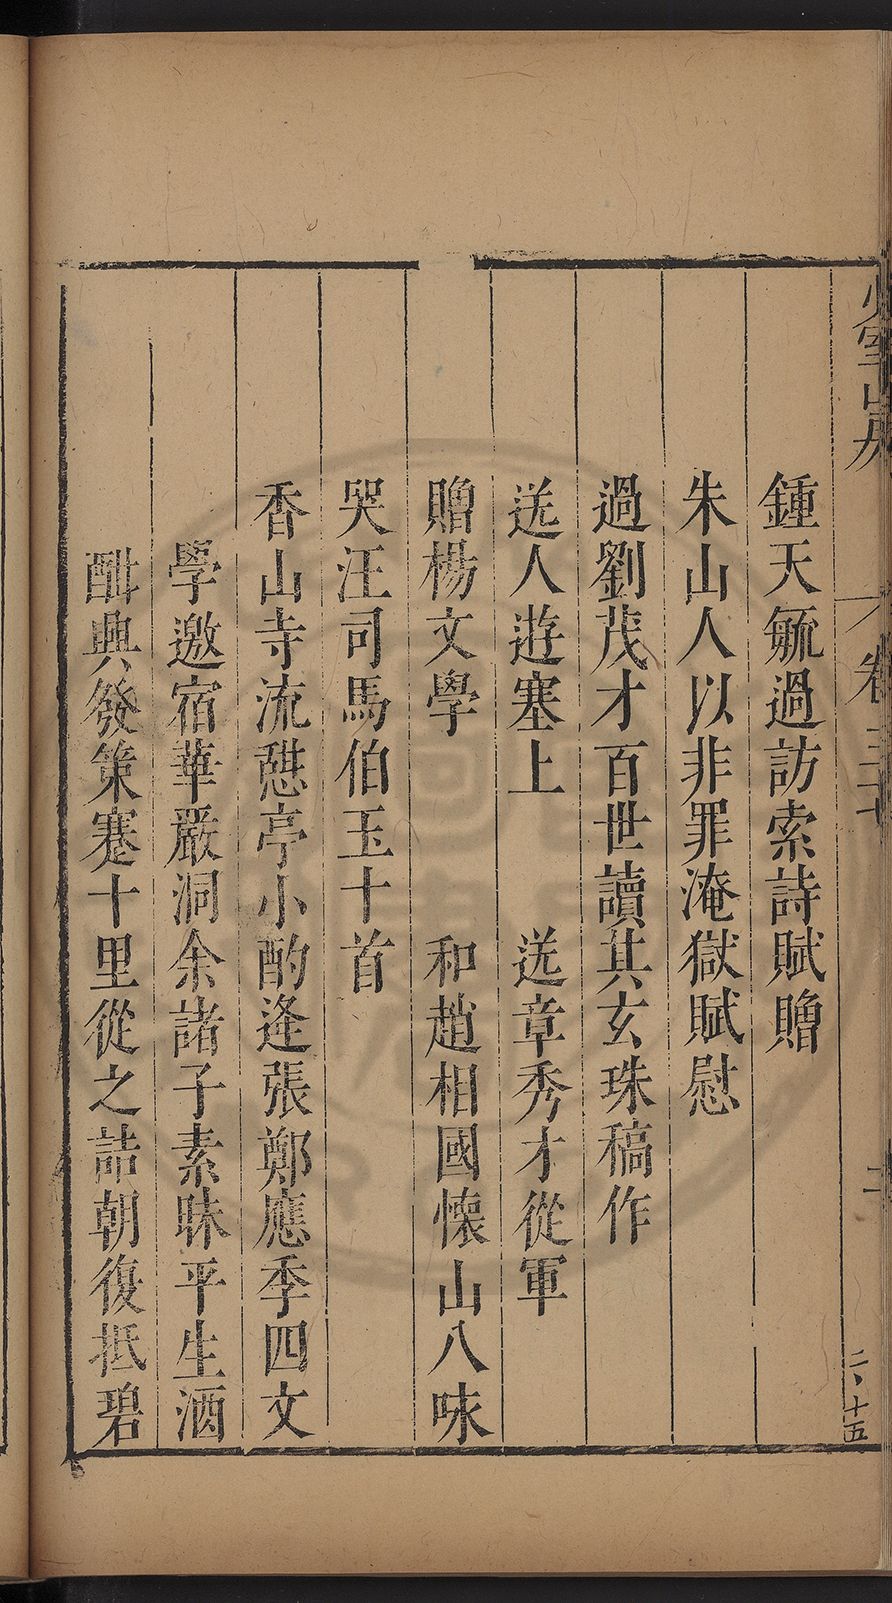 少室山房
卷三七
二
二、十五
鍾天毓過訪索詩賦贈
朱山人以非罪淹獄賦慰
過劉茂才百世讀其玄珠稿作
送人遊塞上　送章秀才從軍
贈楊文學　和趙相國懷山八味
哭汪司馬伯玉十首
香山寺流憇亭小酌逢張鄭應季四文
學邀宿華嚴洞余諸子素昧平生酒
酣興發策蹇十里從之詰朝復抵碧